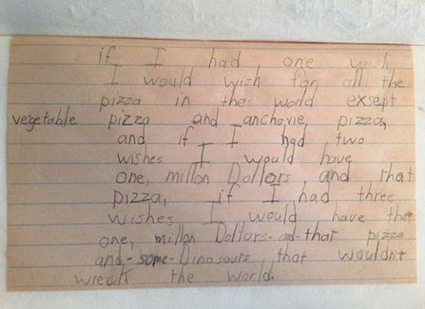 if I had one wish
I would wish for all the
pizza in the world exsept
vegetable pizza and anchovie pizza,
and if I had two
wishes I would have
one, millon Dollors and that
pizza, if I had three
wishes I would have the
one, millon Dollors-ad-that pizza
and,-some-Dinosaurs that wouldn't
wreck the world.